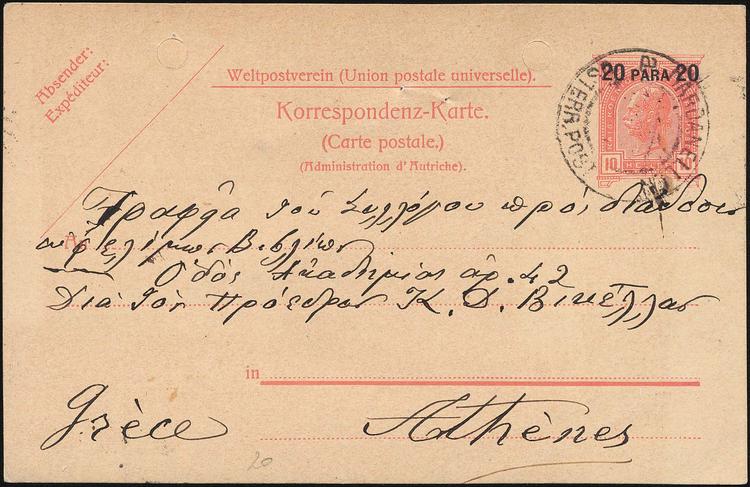 Absender:
Expéditeur:
Weltpostverein (Union postale universelle).
Korrespondenz-Karte.
(Carte postale.)
(Administration d'Autriche).
20 PARA 20
10
DARDANELLI
ÖSTERR. POST
Γραφεῖα τοῦ Συλλόγου πρὸς διάδοσιν
An
ὠφελίμων Βιβλίων
Ὁδὸς Ἀκαδημίας ἀρ. 42
Διὰ τὸν Πρόεδρον Κ. Δ. Βικέλλαν
in
Grèce Athènes
20